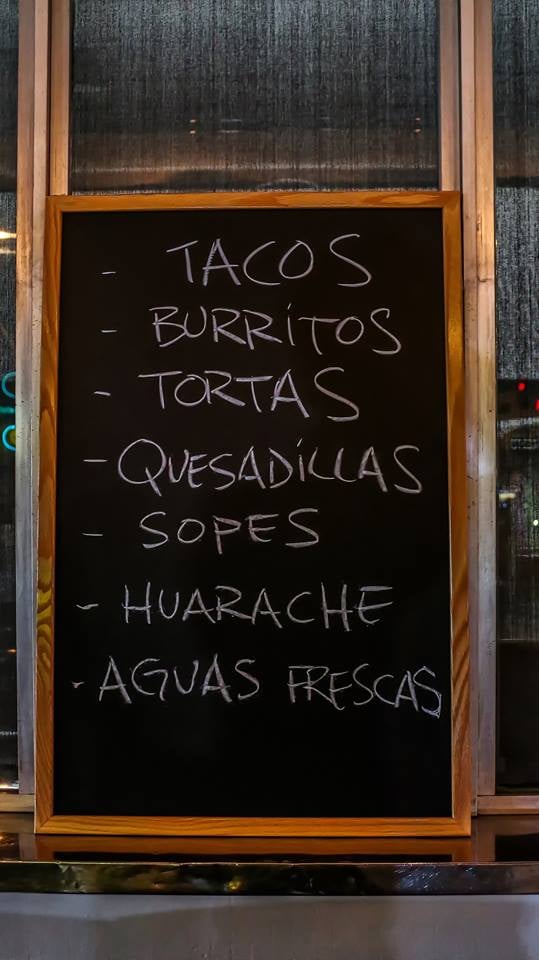 - TACOS
- BURRiTOS
- TORTAS
- QUESADiLLAS
- SOPES
- HUARACHE
- AGUAS FRESCAS